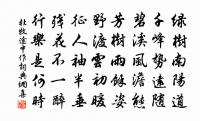 綠樹南陽道
千峰勢遠隨
碧溪風澹態
芳樹雨餘姿
野渡雲初暖
征人袖半垂
殘花不一醉
行樂是何時
杜牧途中作詞典網集